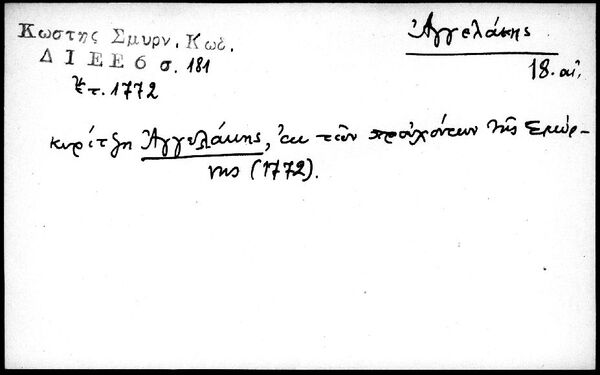 Κωστης Σμυρν. Κωδ.
Δ Ι Ε Ε 6 σ. 181
ἔτ. 1772
Ἀγγελάκης
18. αἰ.
κυρίτζη Ἀγγελάκης, ἐκ τῶν προὐχόντων τῆς Σμύρ-
νης (1772).